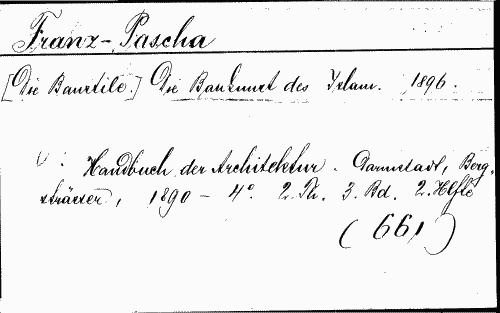 Franz-Pascha
[Die Baustile.] Die Baukunst des Islam. 1896.
Handbuch der Architektur. Darmstadt, Berg-
strässer, 1890 - 4°. 2. Th. 3. Bd. 2. Hlfte
(661)